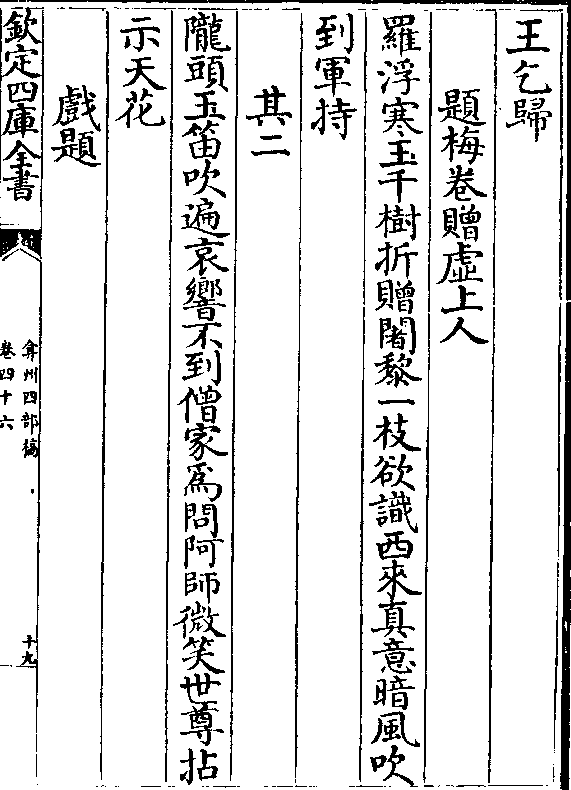 王乞歸
題梅卷贈虛上人
羅浮寒玉千樹折贈闍黎一枝欲識西來真意暗風吹
到軍持
其二
隴頭玉笛吹遍哀響不到僧家爲問阿師微笑世尊拈
示天花
戲題
欽定四庫全書
弇州四部稿
卷四十六
十九